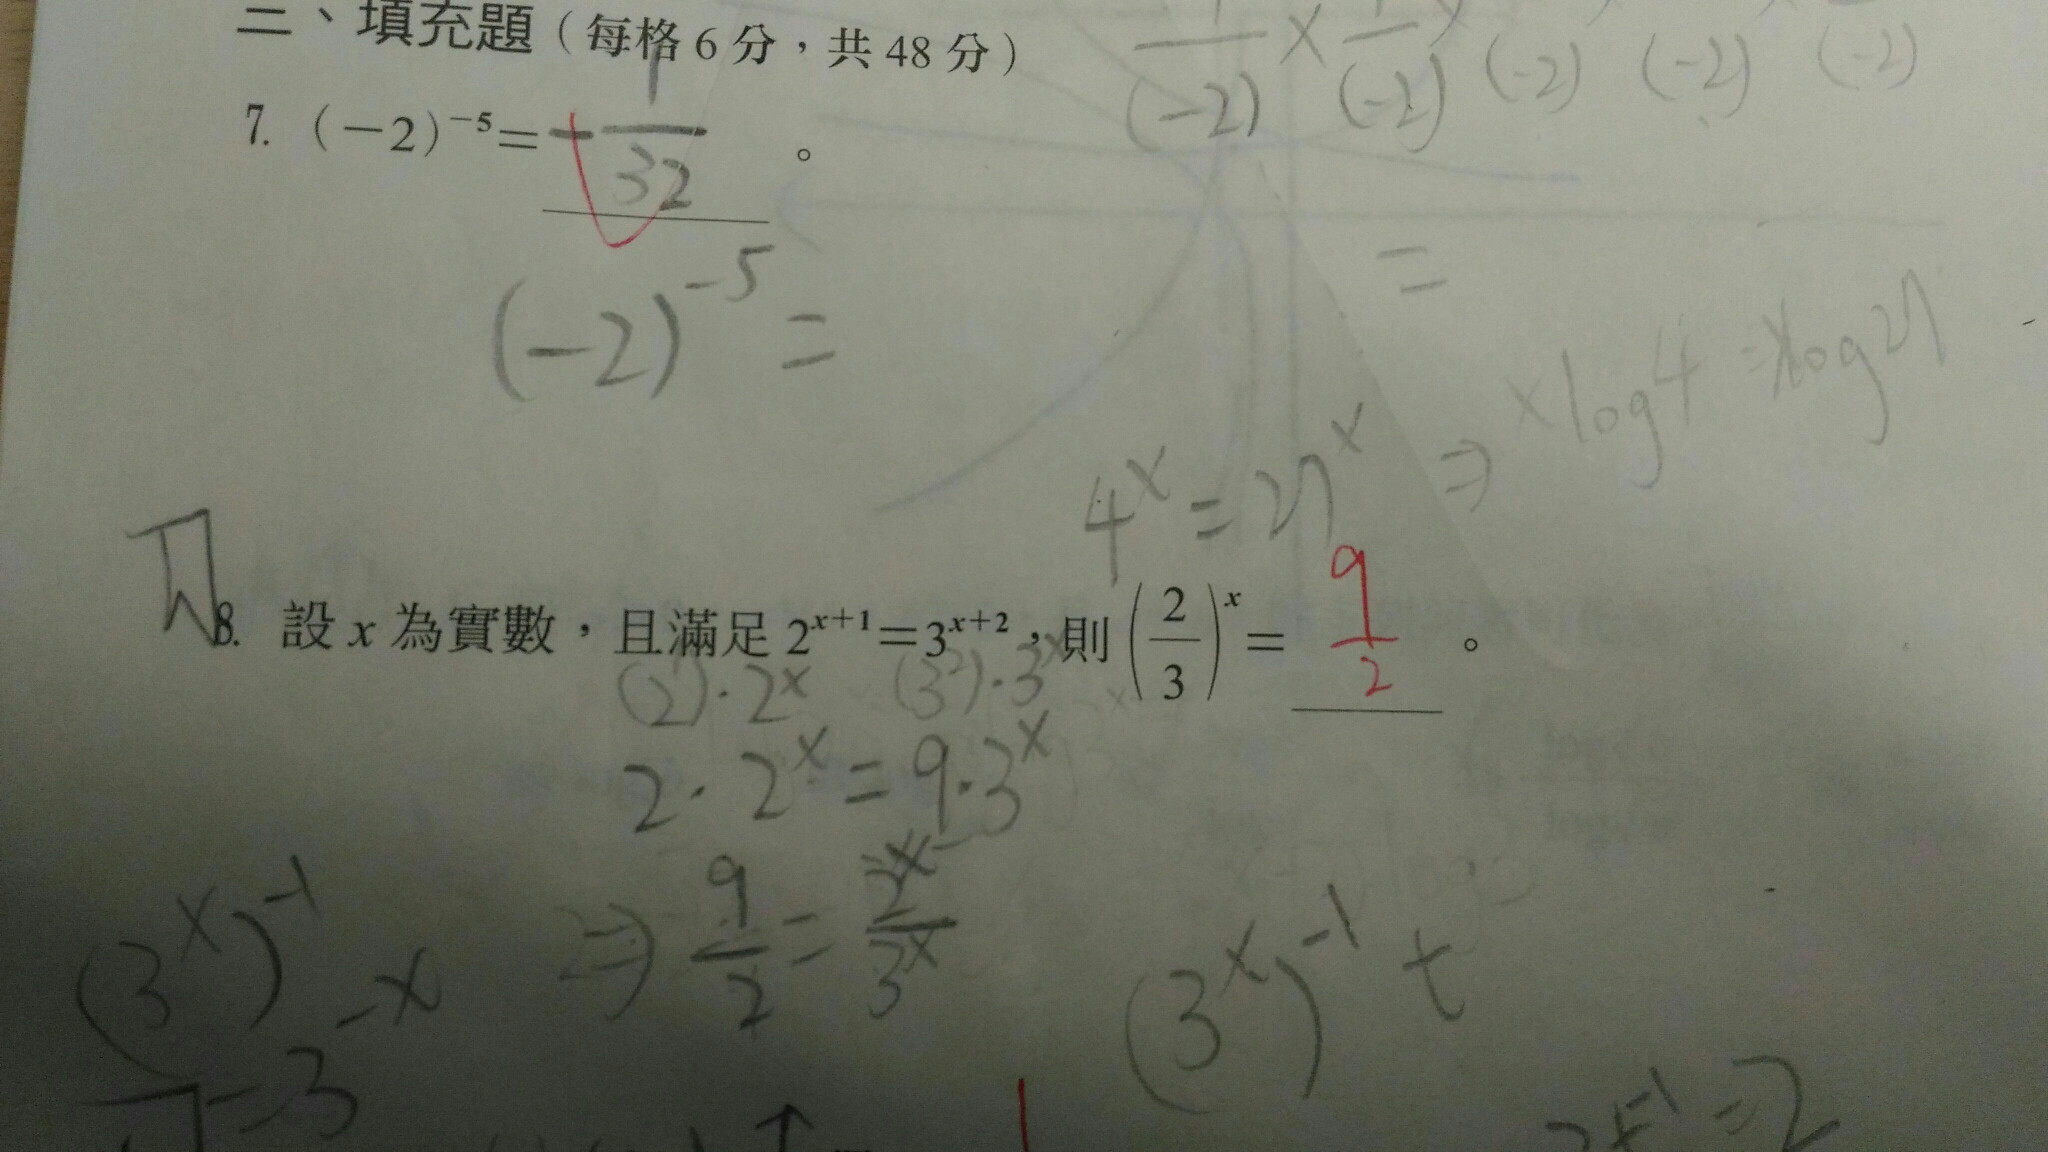 二、填充題（每格6分，共48分）
(-2) × (-2) (-2) (-2) (-2)
7. (－2)⁻⁵＝ -1/32 。
(-2)⁻⁵ =
=
4ˣ = 27ˣ ⇒ xlog4 = xlog27
8. 設 x 為實數，且滿足 2ˣ⁺¹＝3ˣ⁺²，則 (2/3)ˣ＝ 9/2 。
(2¹)·2ˣ (3²)·3ˣ
2·2ˣ = 9·3ˣ
⇒ 9/2 = 2ˣ/3ˣ
(3ˣ)⁻¹
= 3⁻ˣ
(3ˣ)⁻¹ t